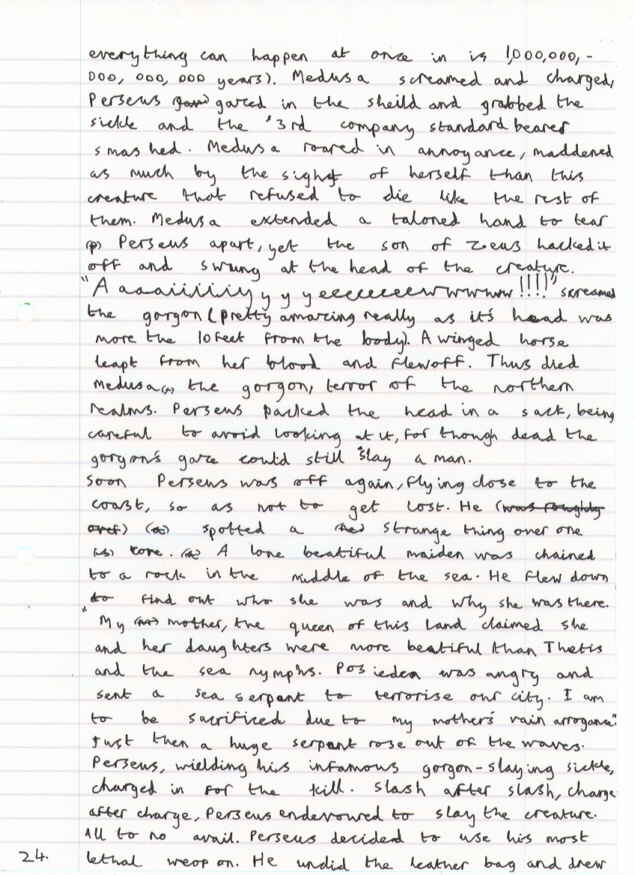 everything can happen at once in is 1,000,000,-
000,000,000 years). Medusa screamed and charged,
Perseus gazed in the sheild and grabbed the
sickle and the '3rd company standard bearer
smashed. Medusa roared in annoyance, maddened
as much by the sight of herself than this
creature that refused to die like the rest of
them. Medusa extended a taloned hand to tear
(p) Perseus apart, yet the son of Zeus hacked it
off and swung at the head of the creature.
"Aaaaaiiiiiyyyyeeeeeeeewwwww!!!!" screamed
the gorgon (pretty amazing really as it's head was
more the 10 feet from the body). A winged horse
leapt from her blood and flew off. Thus died
Medusa, the gorgon, terror of the northern
realms. Perseus packed the head in a sack, being
careful to avoid looking at it, for though dead the
gorgon's gaze could still slay a man.
Soon Perseus was off again, flying close to the
coast, so as not to get lost. He (was roughly
over) spotted a strange thing over one
cove. A lone beatiful maiden was chained
to a rock in the middle of the sea. He flew down
to find out who she was and why she was there.
"My mother, the queen of this land claimed she
and her daughters were more beatiful than Thetis
and the sea nymphs. Posieden was angry and
sent a sea serpant to terrorise our city. I am
to be sacrificed due to my mother's vain arrogance."
Just then a huge serpant rose out of the waves.
Perseus, wielding his infamous gorgon-slaying sickle,
charged in for the kill. Slash after slash, charge
after charge, Perseus endevoured to slay the creature.
All to no avail. Perseus decided to use his most
24. lethal weopon. He undid the leather bag and drew